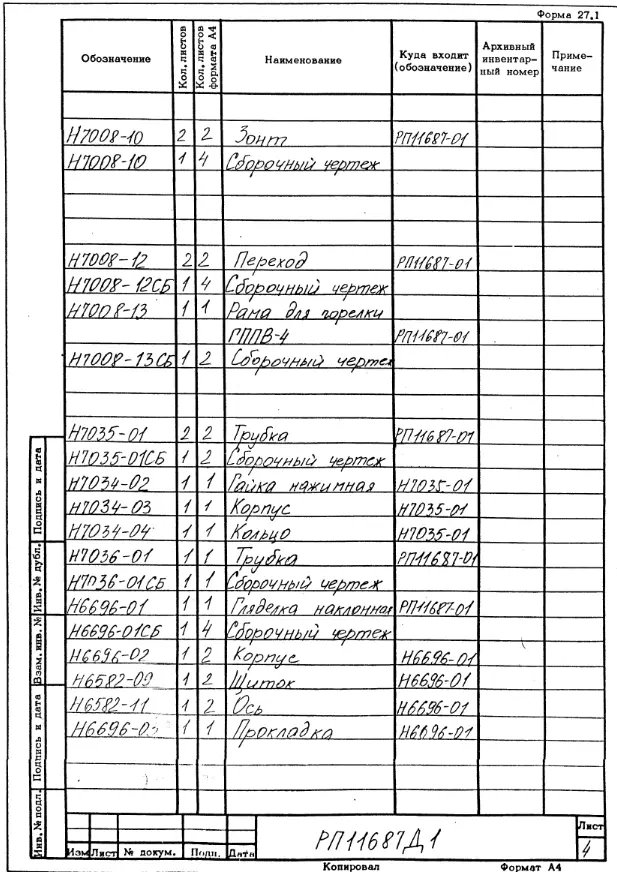 Форма 27.1
Обозначение Кол. листов Кол. листов формата А4 Наименование Куда входит (обозначение) Архивный инвентар- ный номер Приме- чание
Н7008-10 2 2 Зонт РП11687-01
Н7008-10 1 4 Сборочный чертеж
Н7008-12 2 2 Переход РП11687-01
Н7008-12СБ 1 4 Сборочный чертеж
Н7008-13 1 1 Рама для горелки
ГППВ-4 РП11687-01
Н7008-13СБ 1 2 Сборочный чертеж
Н7035-01 2 2 Трубка РП11687-01
Н7035-01СБ 1 2 Сборочный чертеж
Н7034-02 1 1 Гайка нажимная Н7035-01
Н7034-03 1 1 Корпус Н7035-01
Н7034-04 1 1 Кольцо Н7035-01
Н7036-01 1 1 Трубка РП11687-01
Н7036-01СБ 1 1 Сборочный чертеж
Н6696-01 1 1 Гляделка наклонная РП11687-01
Н6696-01СБ 1 4 Сборочный чертеж
Н6696-02 1 2 Корпус Н6696-01
Н6582-09 1 2 Щиток Н6696-01
Н6582-11 1 2 Ось Н6696-01
1 1 Прокладка Н6696-01
Инв. № подл. Подпись и дата Взам. инв. № Инв. № дубл. Подпись и дата
РП11687Д1
Лист
4
Изм Лист № докум. Подп. Дата
Копировал Формат А4